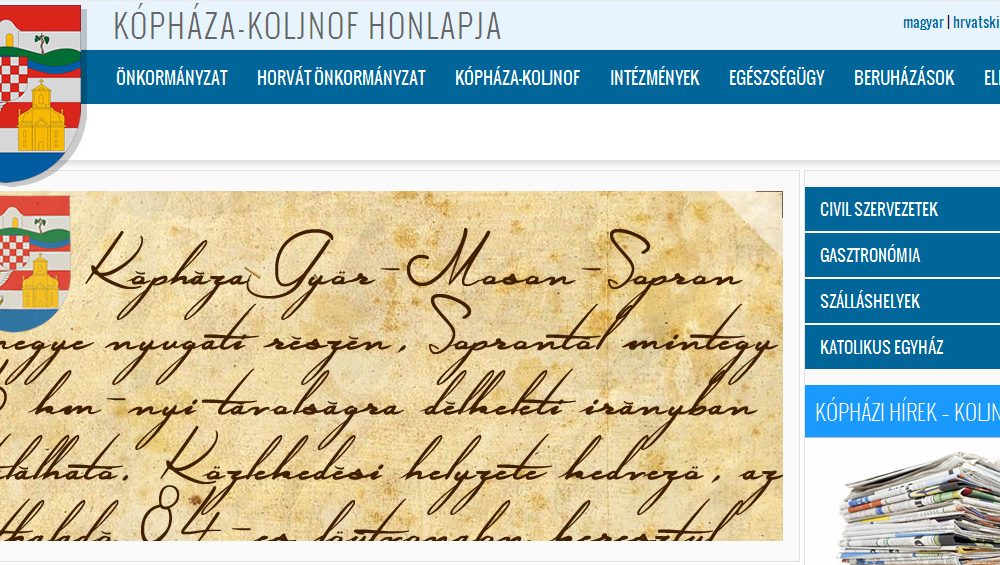 KÓPHÁZA-KOLJNOF HONLAPJA
magyar | hrvatski
ÖNKORMÁNYZAT HORVÁT ÖNKORMÁNYZAT KÓPHÁZA-KOLJNOF INTÉZMÉNYEK EGÉSZSÉGÜGY BERUHÁZÁSOK
Kópháza Győr-Moson-Sopron
megye nyugati részén, Soprontól mintegy
km-nyi távolságra délkeleti irányban
található. Közlekedési helyzete kedvező, az
áthaladó 84-es főútvonalon keresztül
CIVIL SZERVEZETEK
GASZTRONÓMIA
SZÁLLÁSHELYEK
KATOLIKUS EGYHÁZ
KÓPHÁZI HÍREK - KOLJN